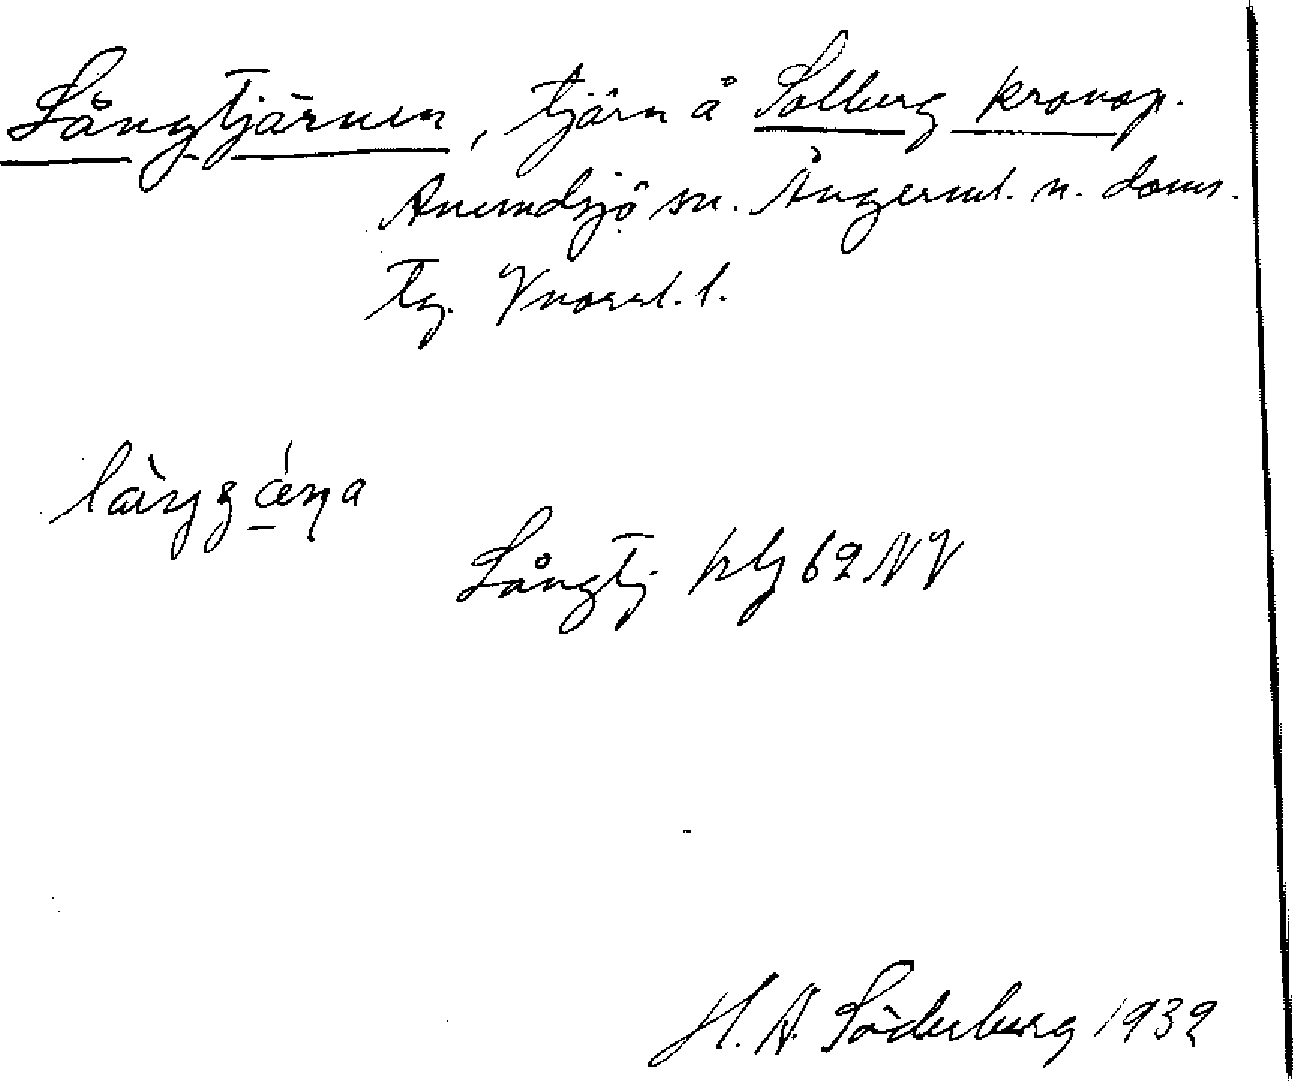 Långtjärnen, tjärn å Solberg kronop.
Anundsjö sn. Ångerml. n. doms.
tg. Vnorrl. l.
Långtj. klg 62 NV
H. A. Söderberg 1932